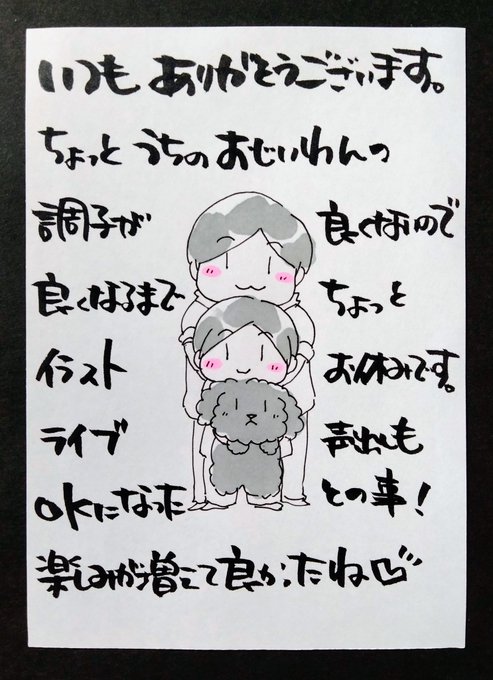 いつも ありがとうございます。
ちょっと うちの おじいわんの
調子が 良くないので
良くなるまで ちょっと
イラスト お休みです。
ライブ 声出しも
OKになった との事！
楽しみが増えて良かったね